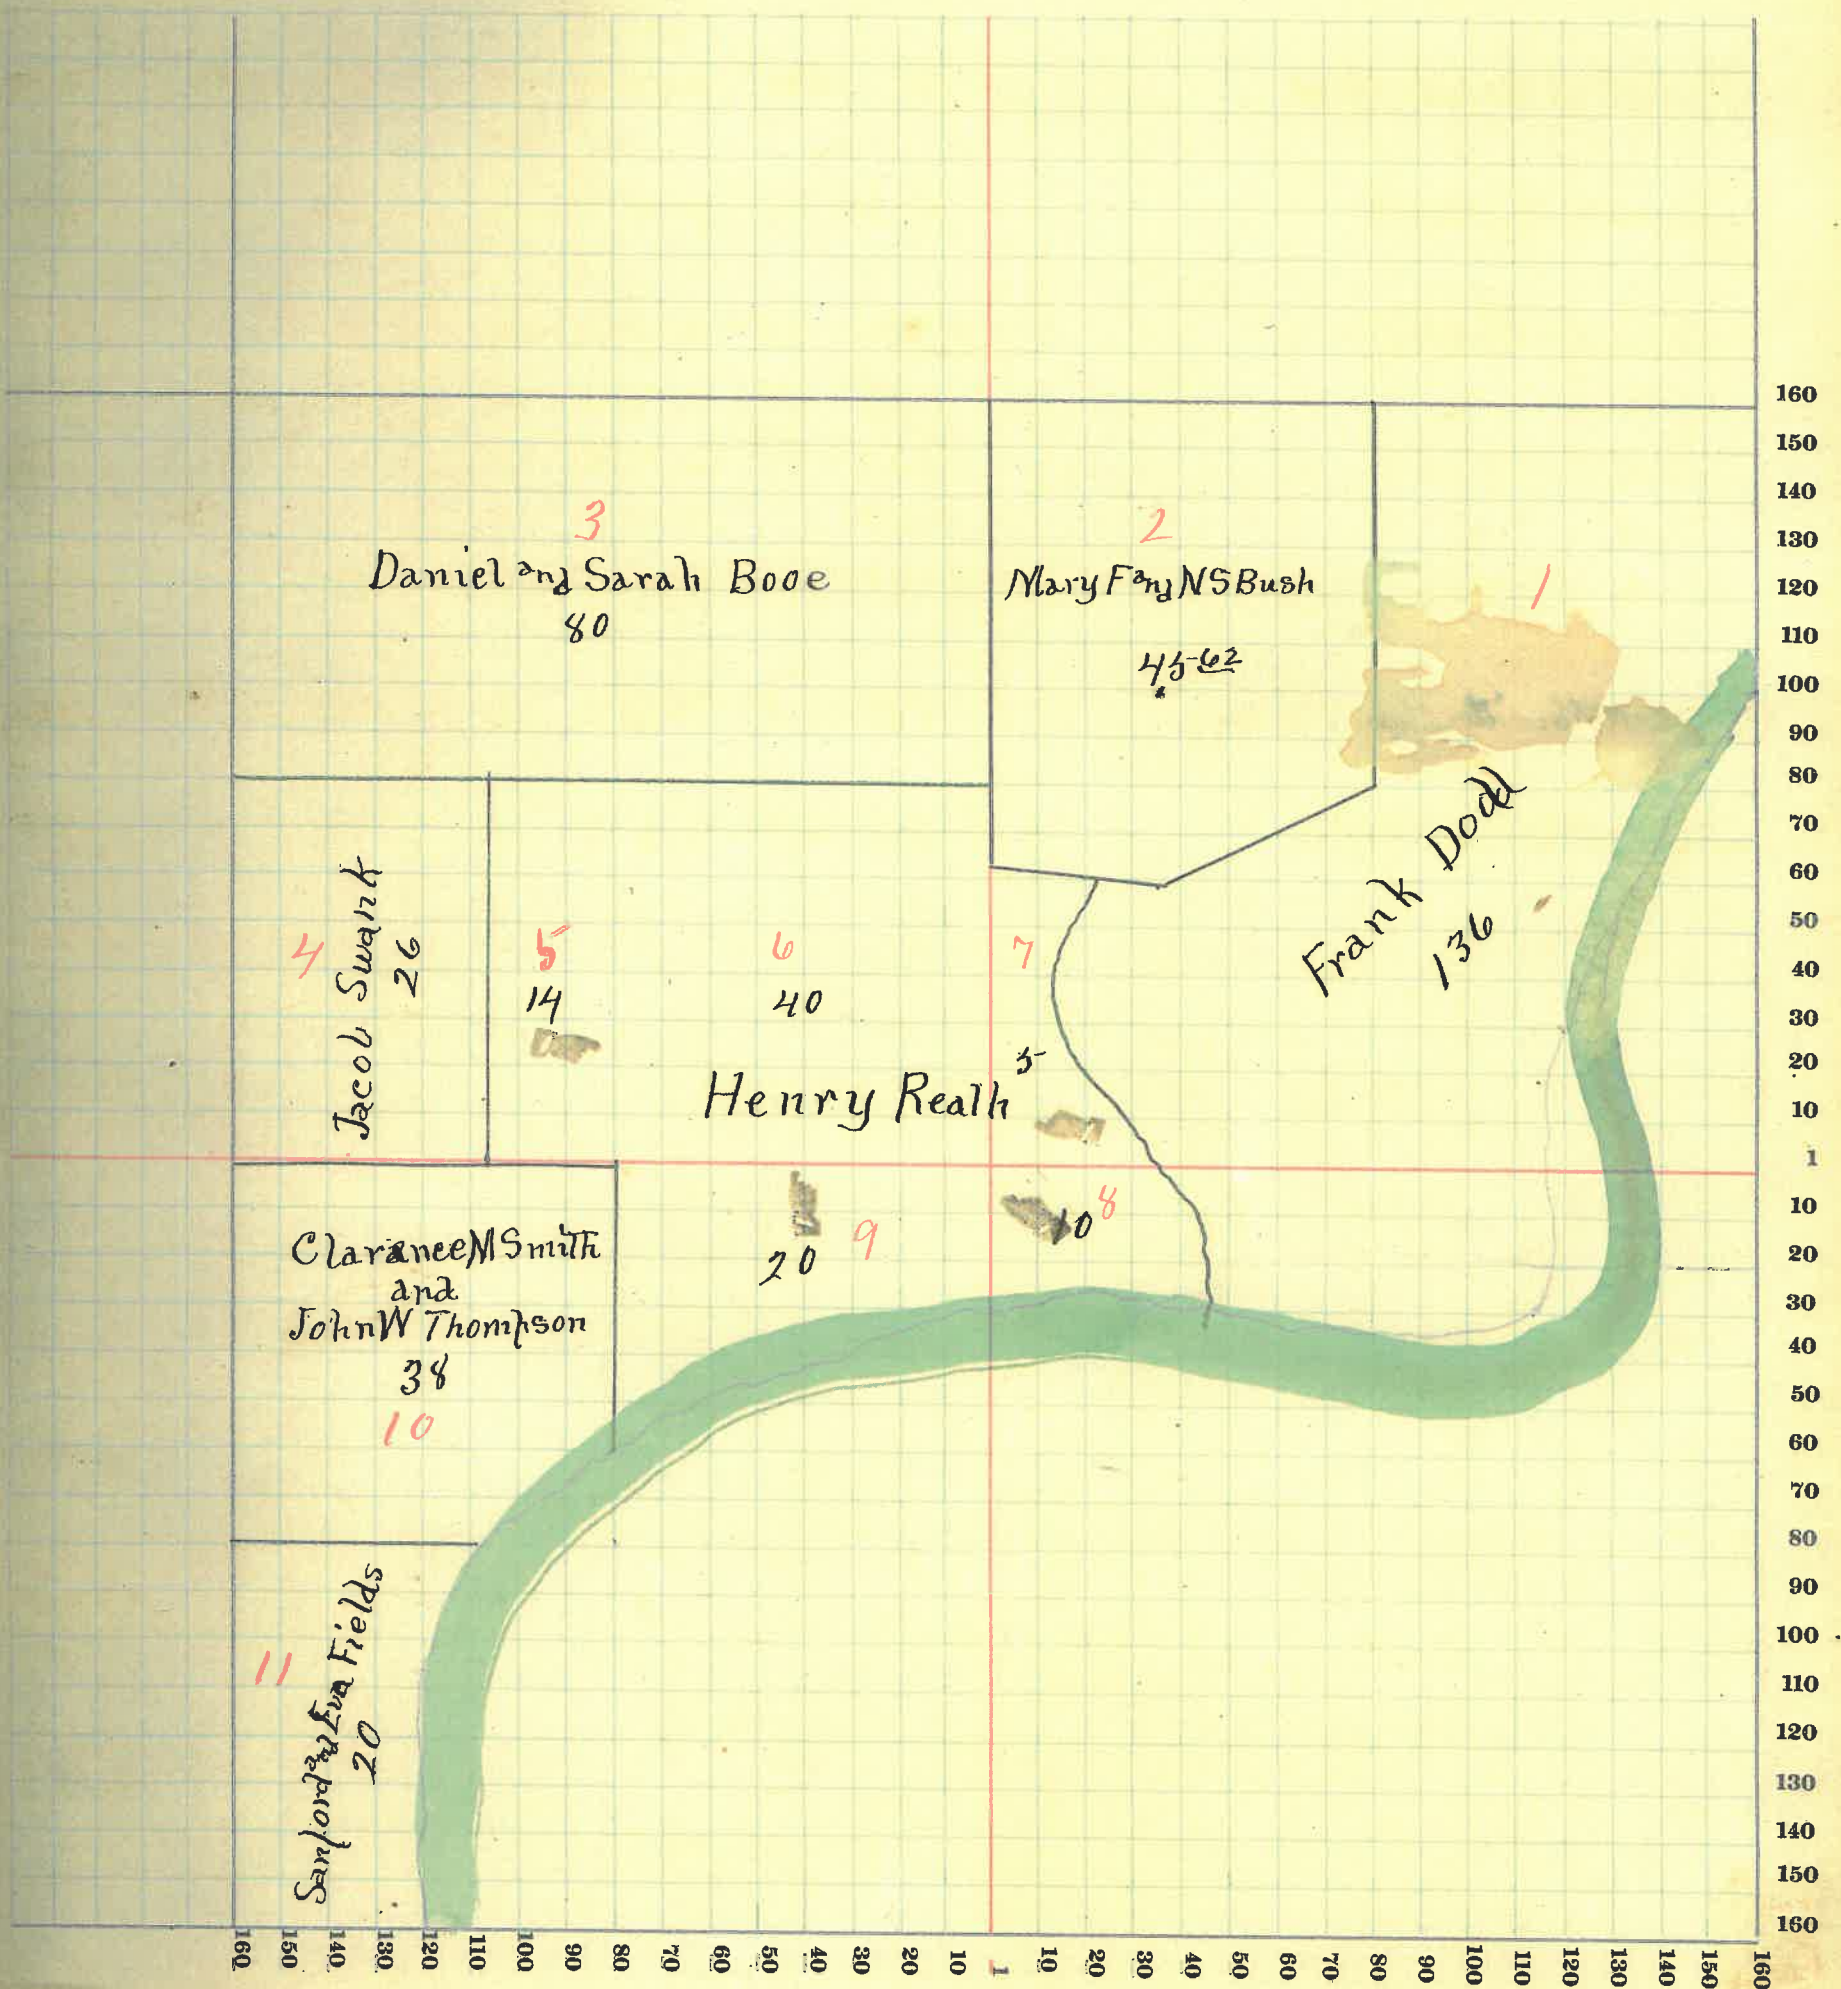 3
Daniel and Sarah Booe
80
2
Mary F and N S Bush
45 62
1
Frank Dodd
136
4
Jacob Swank
26
5
14
6
40
7
5
Henry Realh
8
10
9
20
Claranee M Smith
and
John W Thompson
38
10
11
Sanford and Eva Fields
20
160
150
140
130
120
110
100
90
80
70
60
50
40
30
20
10
1
10
20
30
40
50
60
70
80
90
100
110
120
130
140
150
160
160 150 140 130 120 110 100 90 80 70 60 50 40 30 20 10 1 10 20 30 40 50 60 70 80 90 100 110 120 130 140 150 160